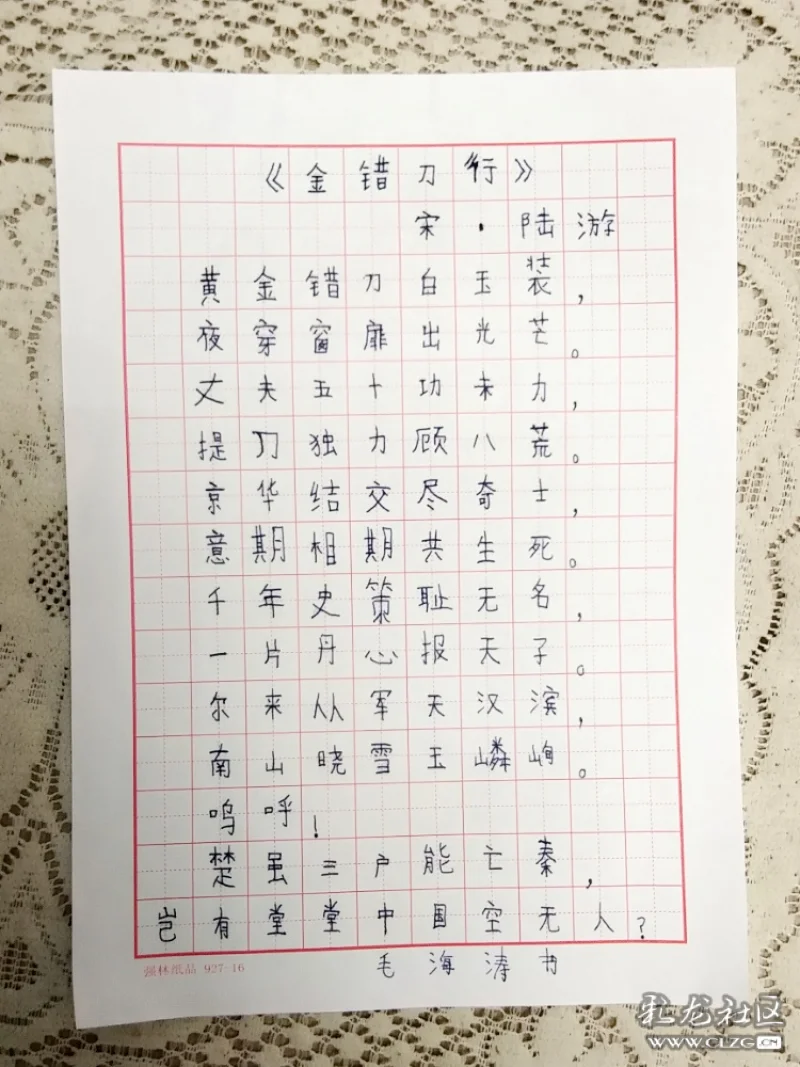 《金错刀行》
宋·陆游
黄金错刀白玉装，
夜穿窗扉出光芒。
丈夫五十功未力，
提刀独力顾八荒。
京华结交尽奇士，
意期相期共生死。
千年史策耻无名，
一片丹心报天子。
尔来从军天汉滨，
南山晓雪玉嶙峋。
呜呼！
楚虽三户能亡秦，
岂有堂堂中国空无人？
毛海涛书
强林纸品 927-16
化龙社区
WWW.CLZG.CN